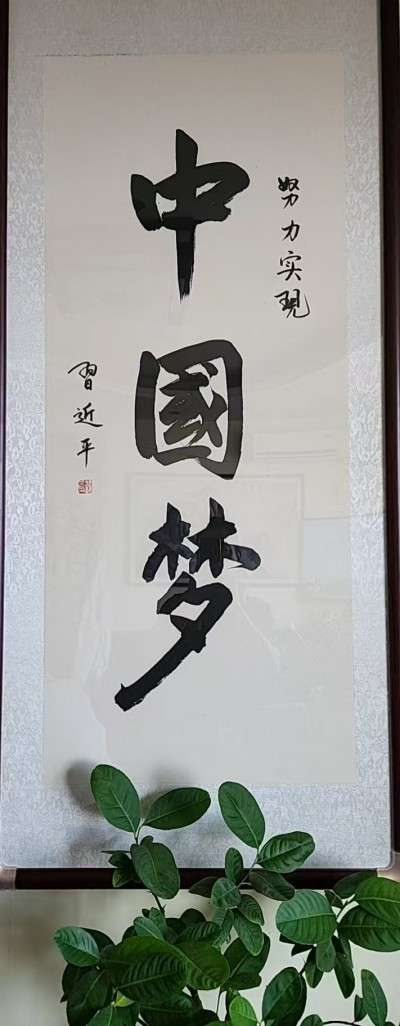 努力实现
中國梦
習近平